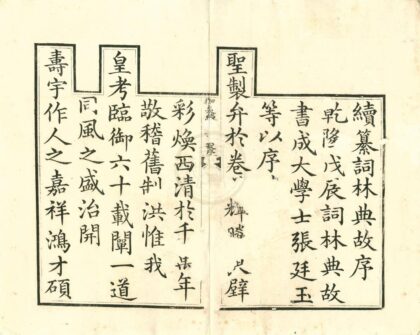 續纂詞林典故序
乾隆戊辰詞林典故
書成大學士張廷玉
等以序
聖製弁於卷 輝 尺璧
彩煥西清於千 年
敬稽舊制洪惟我
皇考臨御六十載闡一道
同風之盛治開
壽宇作人之嘉祥鴻才碩